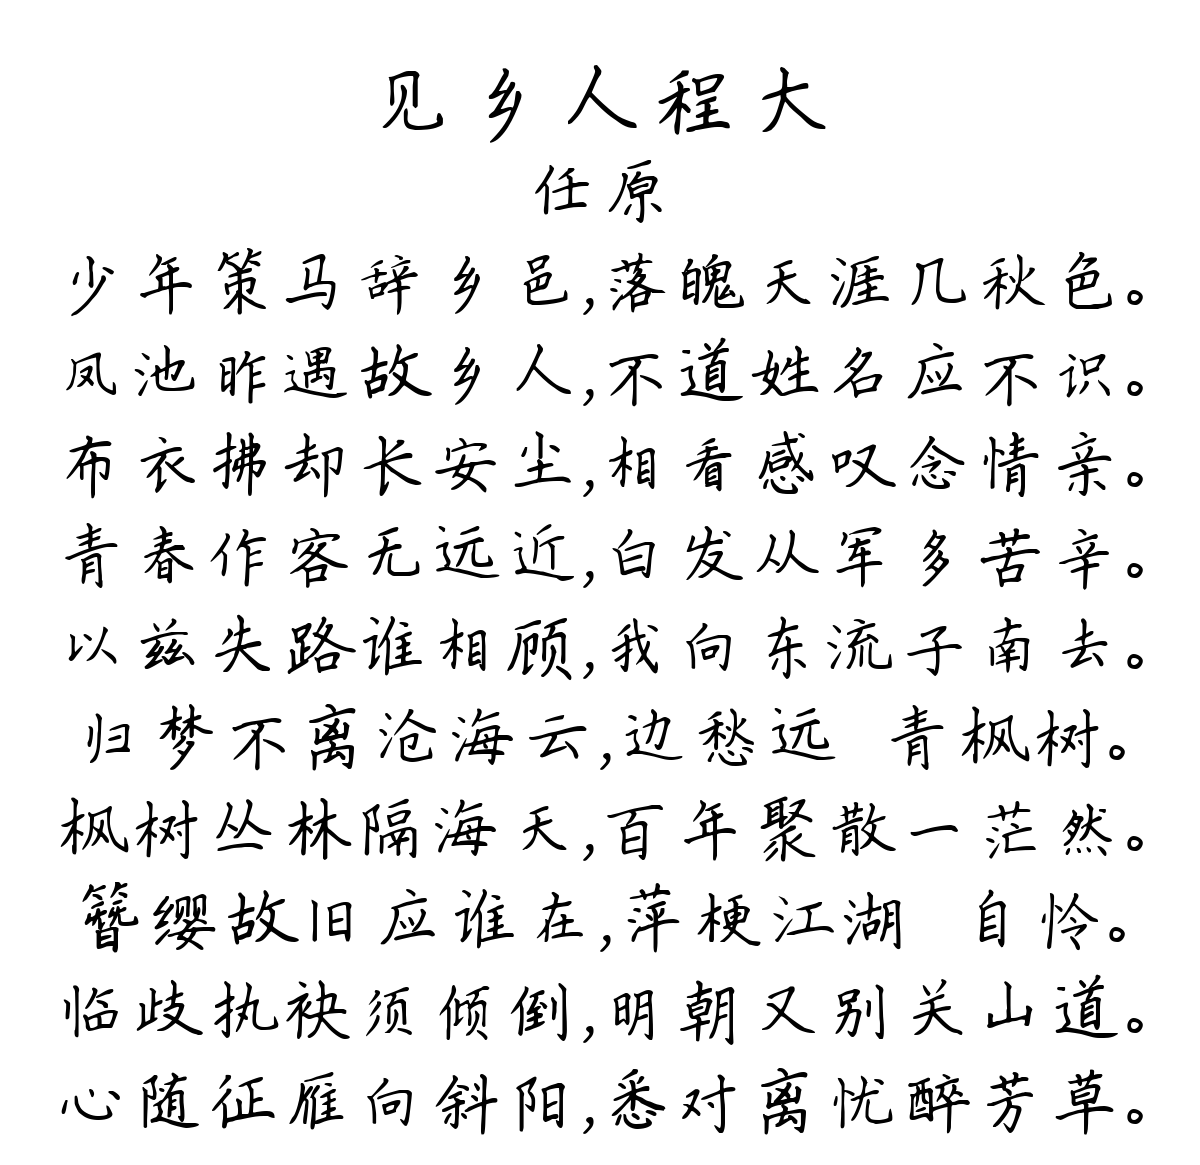 见乡人程大
任原
少年策马辞乡邑,落魄天涯几秋色。
凤池昨遇故乡人,不道姓名应不识。
布衣拂却长安尘,相看感叹念情亲。
青春作客无远近,白发从军多苦辛。
以兹失路谁相顾,我向东流子南去。
归梦不离沧海云,边愁远 青枫树。
枫树丛林隔海天,百年聚散一茫然。
簪缨故旧应谁在,萍梗江湖 自怜。
临歧执袂须倾倒,明朝又别关山道。
心随征雁向斜阳,悉对离忧醉芳草。